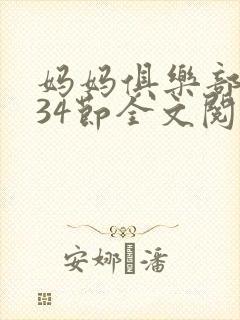 妈妈俱樂部
34節全文閱
安娜·潘